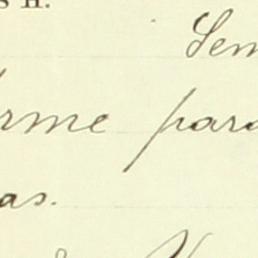 s n.
Sem
rme para
as.